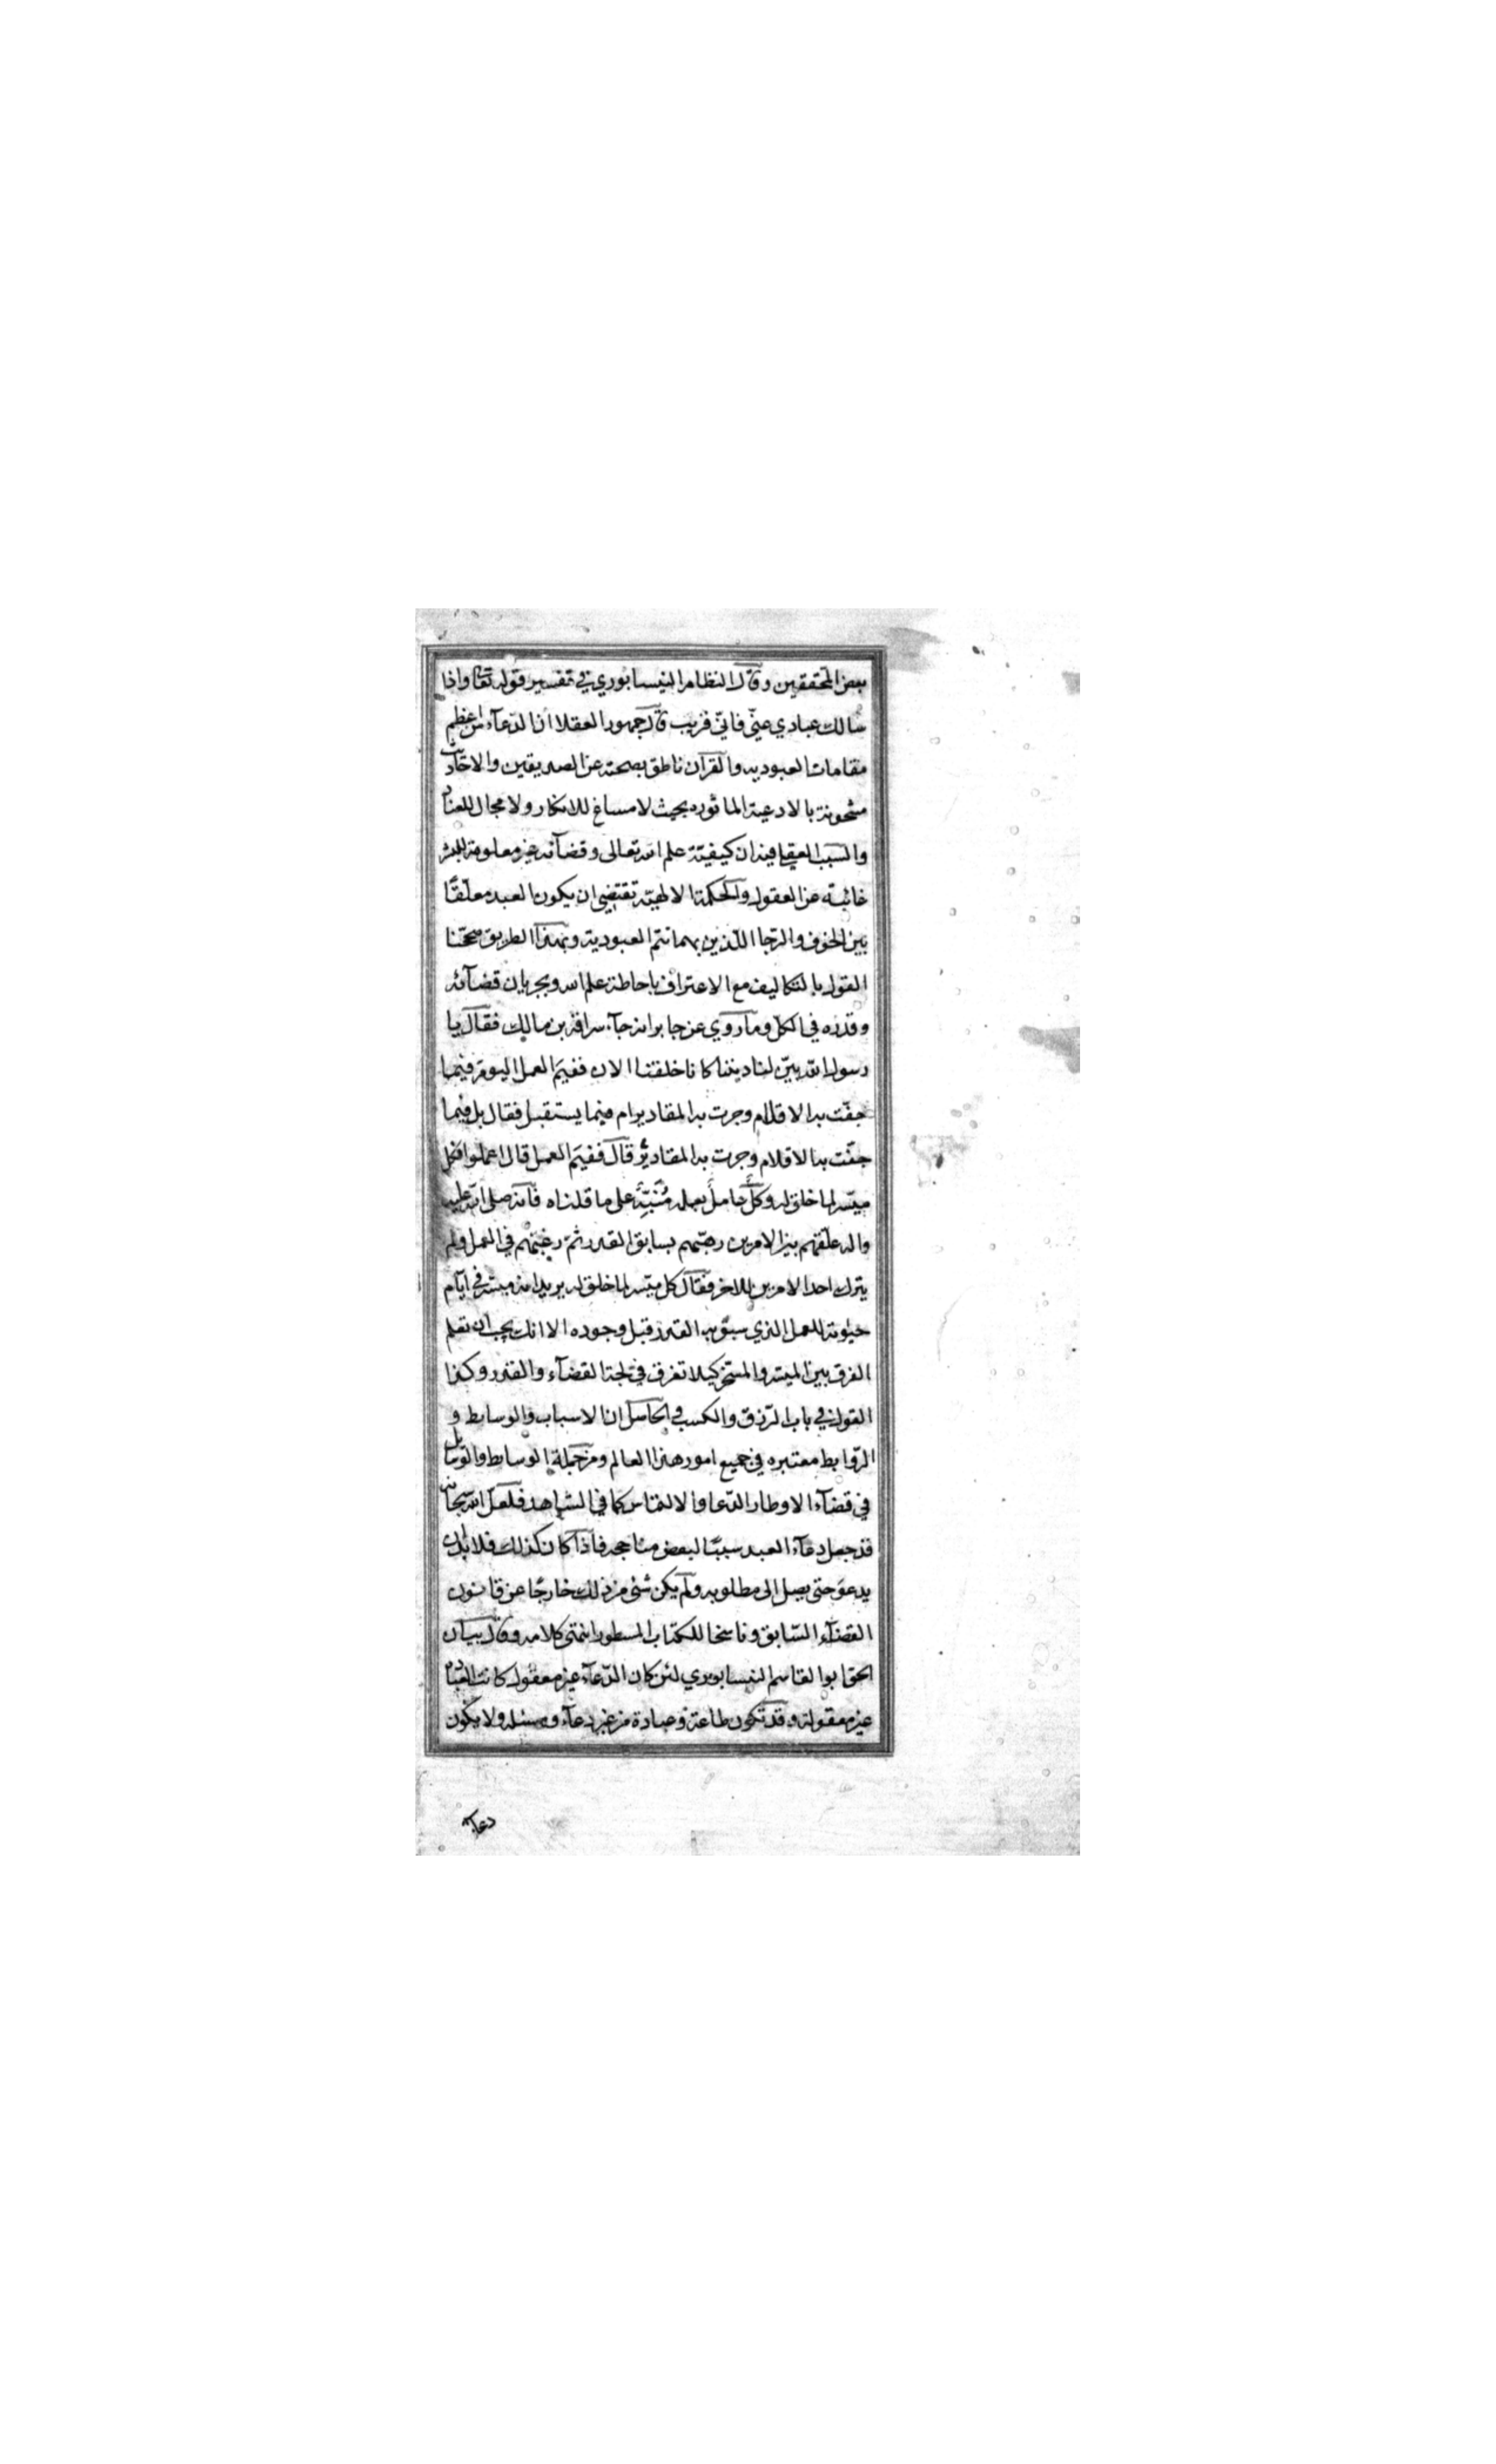 بعض المحققين وقال النظام النيسابوري في تفسير قوله تعا واذا
سالك عبادي عنّي فانّي قريب قال جمهور العقلا ان الدّعآء من اعظم
مقامات العبوديه والقرآن ناطق بصحته عن الصديقين والاحاديث
مشحونة بالادعية الماثوره بحيث لا مساغ للانكار ولا مجال للعناد
والسبب العقلي فيه ان كيفيّة علم الله تعالى وقضآئه غير معلومة للبشر
غائبة عن العقول والحكمة الالهيّة تقتضي ان يكون العبد معلّقًا
بين الخوف والرّجا اللّذين بهما تتم العبودية وبهذا الطريق صحّحنا
القول بالتكاليف مع الاعتراف باحاطة علم الله وبجريان قضآئه
وقدره في الكلّ وما روي عن جابر انه جآء سراقة بن مالك فقال يا
رسول الله بيّن لنا ديننا كانا خلقنا الان ففيمَ العمل اليوم فيما
جفّت به الاقلام وجرت به المقادير ام فيما يستقبل فقال بل فيما
جفّت به الاقلام وجرت به المقادير قال ففيمَ العمل قال اعملوا فكل
ميسّر لما خلق له وكلّ عامل بعمله مُنَبِّهٌ على ما قلناه فانّه صلى الله عليه
واله علّقهم بين الامرين رهّبهم بسابق القدر ثمّ رغبتهم في العمل ولم
يترك احد الامرين للاخر فقال كل ميسّر لما خلق له يريد انه ميسّر في ايّام
حيٰوته للعمل الذي سبق به القدر قبل وجوده الا انك يجب ان تعلم
الفرق بين الميسّر والمسخّر كيلا تغرق في لجة القضآء والقدر وكذا
القول في باب الرّزق والكسب والحاصل ان الاسباب والوسايط و
الرّوابط معتبره في جميع امور هذا العالم ومن جملة الوسايط والوسايل
في قضآء الاوطار الدّعا والالتماس كما في الشاهد فلعلّ الله سبحانه
قد جعل دعآء العبد سببًا لبعض مناجحه فاذا كان كذلك فلا بد ان
يدعوَ حتى يصل الى مطلوبه ولم يكن شئ من ذلك خارجًا عن قانون
القضآء السّابق وناسخا للكتاب المسطور انتهى كلامه وقال بيان
الحق ابو القاسم النيسابوري لئن كان الدّعآء غير معقول كانت العبادة
غير معقولة وقد تكون طاعة وعبادة من غير دعآء ومسئله ولا يكون
دعآء